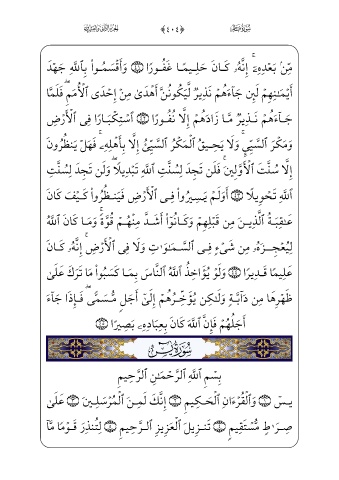 مِّنۢ بَعْدِهِۦٓ ۚ إِنَّهُۥ كَانَ حَلِيمًا غَفُورًا ۝ وَأَقْسَمُوا۟ بِٱللَّهِ جَهْدَ
أَيْمَـٰنِهِمْ لَئِن جَآءَهُمْ نَذِيرٌ لَّيَكُونُنَّ أَهْدَىٰ مِنْ إِحْدَى ٱلْأُمَمِ ۖ فَلَمَّا
جَآءَهُمْ نَذِيرٌ مَّا زَادَهُمْ إِلَّا نُفُورًا ۝ ٱسْتِكْبَارًا فِى ٱلْأَرْضِ
وَمَكْرَ ٱلسَّيِّئِ ۚ وَلَا يَحِيقُ ٱلْمَكْرُ ٱلسَّيِّئُ إِلَّا بِأَهْلِهِۦ ۚ فَهَلْ يَنظُرُونَ
إِلَّا سُنَّتَ ٱلْأَوَّلِينَ ۚ فَلَن تَجِدَ لِسُنَّتِ ٱللَّهِ تَبْدِيلًا ۖ وَلَن تَجِدَ لِسُنَّتِ
ٱللَّهِ تَحْوِيلًا ۝ أَوَلَمْ يَسِيرُوا۟ فِى ٱلْأَرْضِ فَيَنظُرُوا۟ كَيْفَ كَانَ
عَـٰقِبَةُ ٱلَّذِينَ مِن قَبْلِهِمْ وَكَانُوٓا۟ أَشَدَّ مِنْهُمْ قُوَّةً ۚ وَمَا كَانَ ٱللَّهُ
لِيُعْجِزَهُۥ مِن شَىْءٍ فِى ٱلسَّمَـٰوَٰتِ وَلَا فِى ٱلْأَرْضِ ۚ إِنَّهُۥ كَانَ
عَلِيمًا قَدِيرًا ۝ وَلَوْ يُؤَاخِذُ ٱللَّهُ ٱلنَّاسَ بِمَا كَسَبُوا۟ مَا تَرَكَ عَلَىٰ
ظَهْرِهَا مِن دَآبَّةٍ وَلَـٰكِن يُؤَخِّرُهُمْ إِلَىٰٓ أَجَلٍ مُّسَمًّى ۖ فَإِذَا جَآءَ
أَجَلُهُمْ فَإِنَّ ٱللَّهَ كَانَ بِعِبَادِهِۦ بَصِيرًۢا ۝
سُورَةُ يسٓ
بِسْمِ ٱللَّهِ ٱلرَّحْمَـٰنِ ٱلرَّحِيمِ
يسٓ ۝ وَٱلْقُرْءَانِ ٱلْحَكِيمِ ۝ إِنَّكَ لَمِنَ ٱلْمُرْسَلِينَ ۝ عَلَىٰ
صِرَٰطٍ مُّسْتَقِيمٍ ۝ تَنزِيلَ ٱلْعَزِيزِ ٱلرَّحِيمِ ۝ لِتُنذِرَ قَوْمًا مَّآ